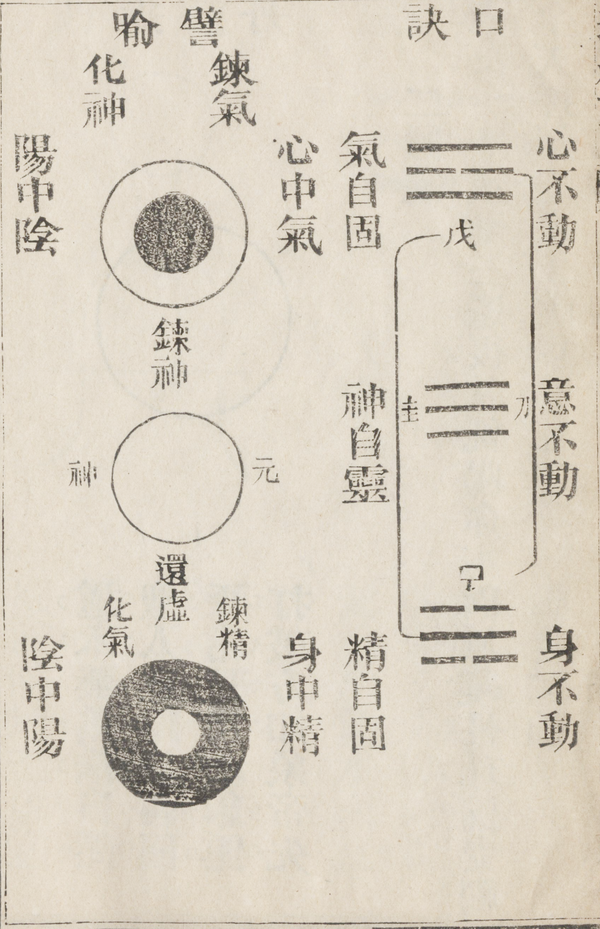 口訣
心不動
意不動
身不動
戊
圭
氣自固
神自靈
精自固
心中氣
身中精
譬喻
鍊氣
化神
鍊神
元
神
還虛
鍊精
化氣
陽中陰
陰中陽